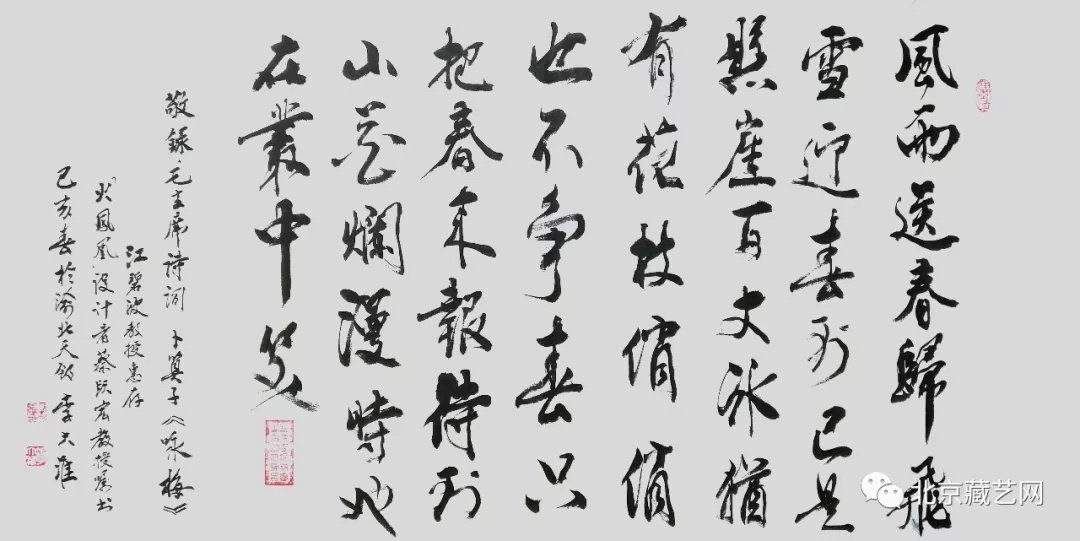 風雨送春歸飛
雪迎春到已是
懸崖百丈冰猶
有花枝俏俏
也不爭春只
把春來報待到
山花爛漫時她
在叢中笑
敬録毛主席詩词 卜算子《咏梅》
江碧波教授惠存
“火鳳凰”設计者蔡跃宏教授嘱书
己亥春於渝北天領 李大淮
北京藏艺网